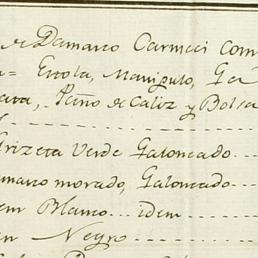 de Damasco Carmeci com
= Estola, Manipulo, Ga
Paño de Caliz y Bolsa
Grizeta Verde Galoneado
masco morado, Galoneado
em Blanco... idem
en Negro